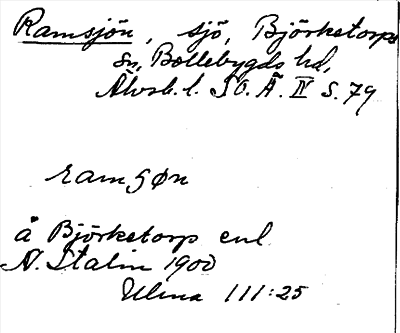 Ramsjön, sjö, Björketorps
sn, Bollebygds hd,
Älvsb. l. SOÄ. IV s. 79
ramsøn
å Björketorp enl.
N. Stalin 1900
Ulma 111:25